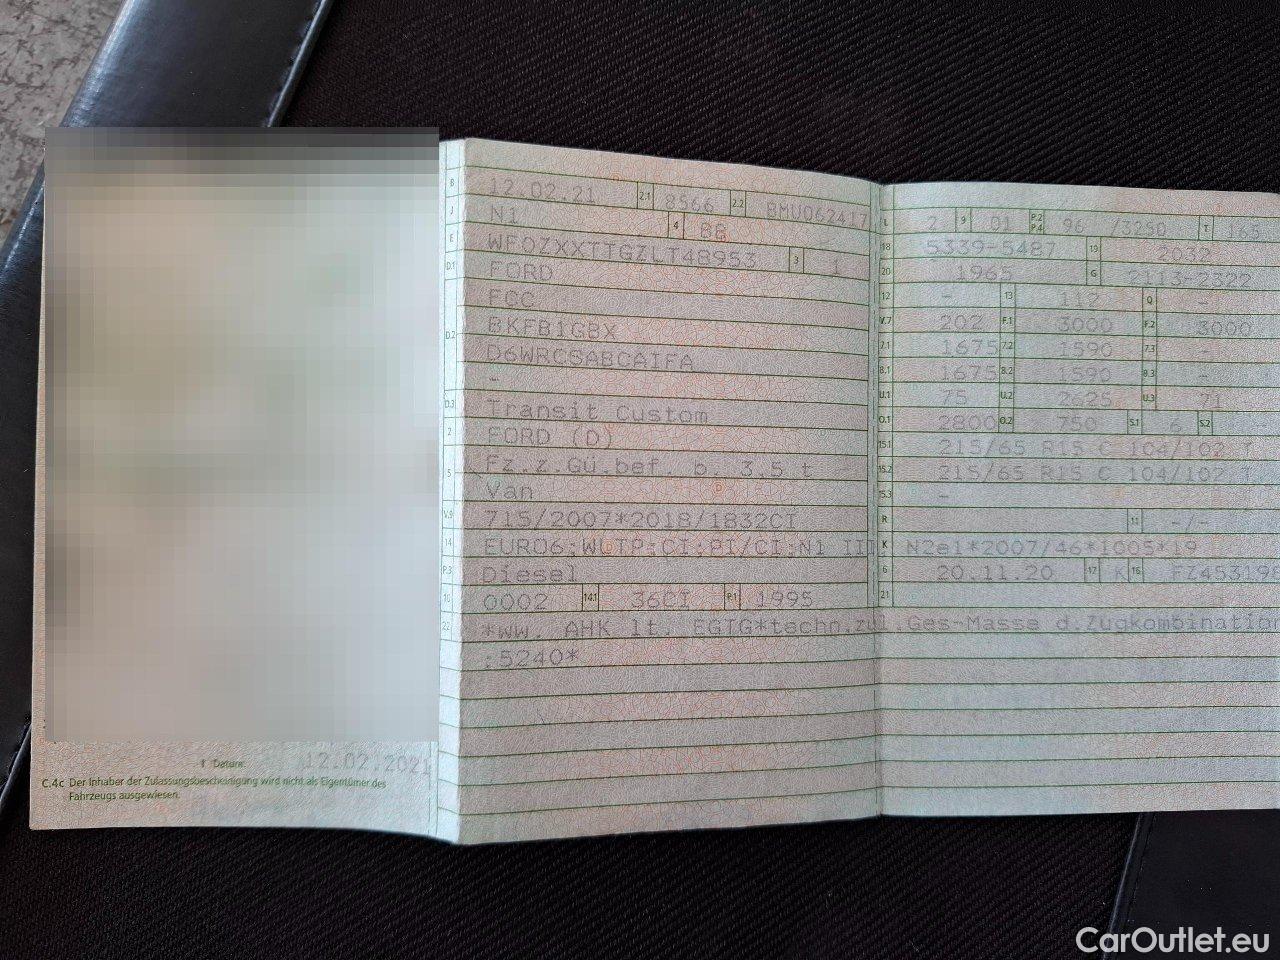 1 Datum: 12.02.2021
C.4c Der Inhaber der Zulassungsbescheinigung wird nicht als Eigentümer des
Fahrzeugs ausgewiesen.
B 12.02.21 2.1 8566 2.2 BMU062417
J N1 4 BB
E WF0ZXXTTGZLT48953 3 1
D.1 FORD
FCC
D.2 BKFB1GBX
D6WRCSABCAIFA
-
D.3 Transit Custom
2 FORD (D)
5 Fz.z.Gü.bef. b. 3,5 t
Van
V.9 715/2007*2018/1832CI
14 EURO6;WLTP;CI;PI/CI;N1 III
P.3 Diesel
10 0002 14.1 36CI P.1 1995
22 *ww. AHK lt. EGTG*techn.zul.Ges-Masse d.Zugkombination
:5240*
L 2 9 01 P.2 P.4 96 /3250 T 165
18 5339-5487 19 2032
20 1965 G 2113-2322
12 - 13 112 Q -
V.7 202 F.1 3000 F.2 3000
7.1 1675 7.2 1590 7.3 -
8.1 1675 8.2 1590 8.3 -
U.1 75 U.2 2625 U.3 71
O.1 2800 O.2 750 S.1 6 S.2 -
15.1 215/65 R15 C 104/102 T
15.2 215/65 R15 C 104/102 T
15.3 -
R 11 -/-
K N2e1*2007/46*1005*19
6 20.11.20 17 K 16 FZ453198
21
CarOutlet.eu